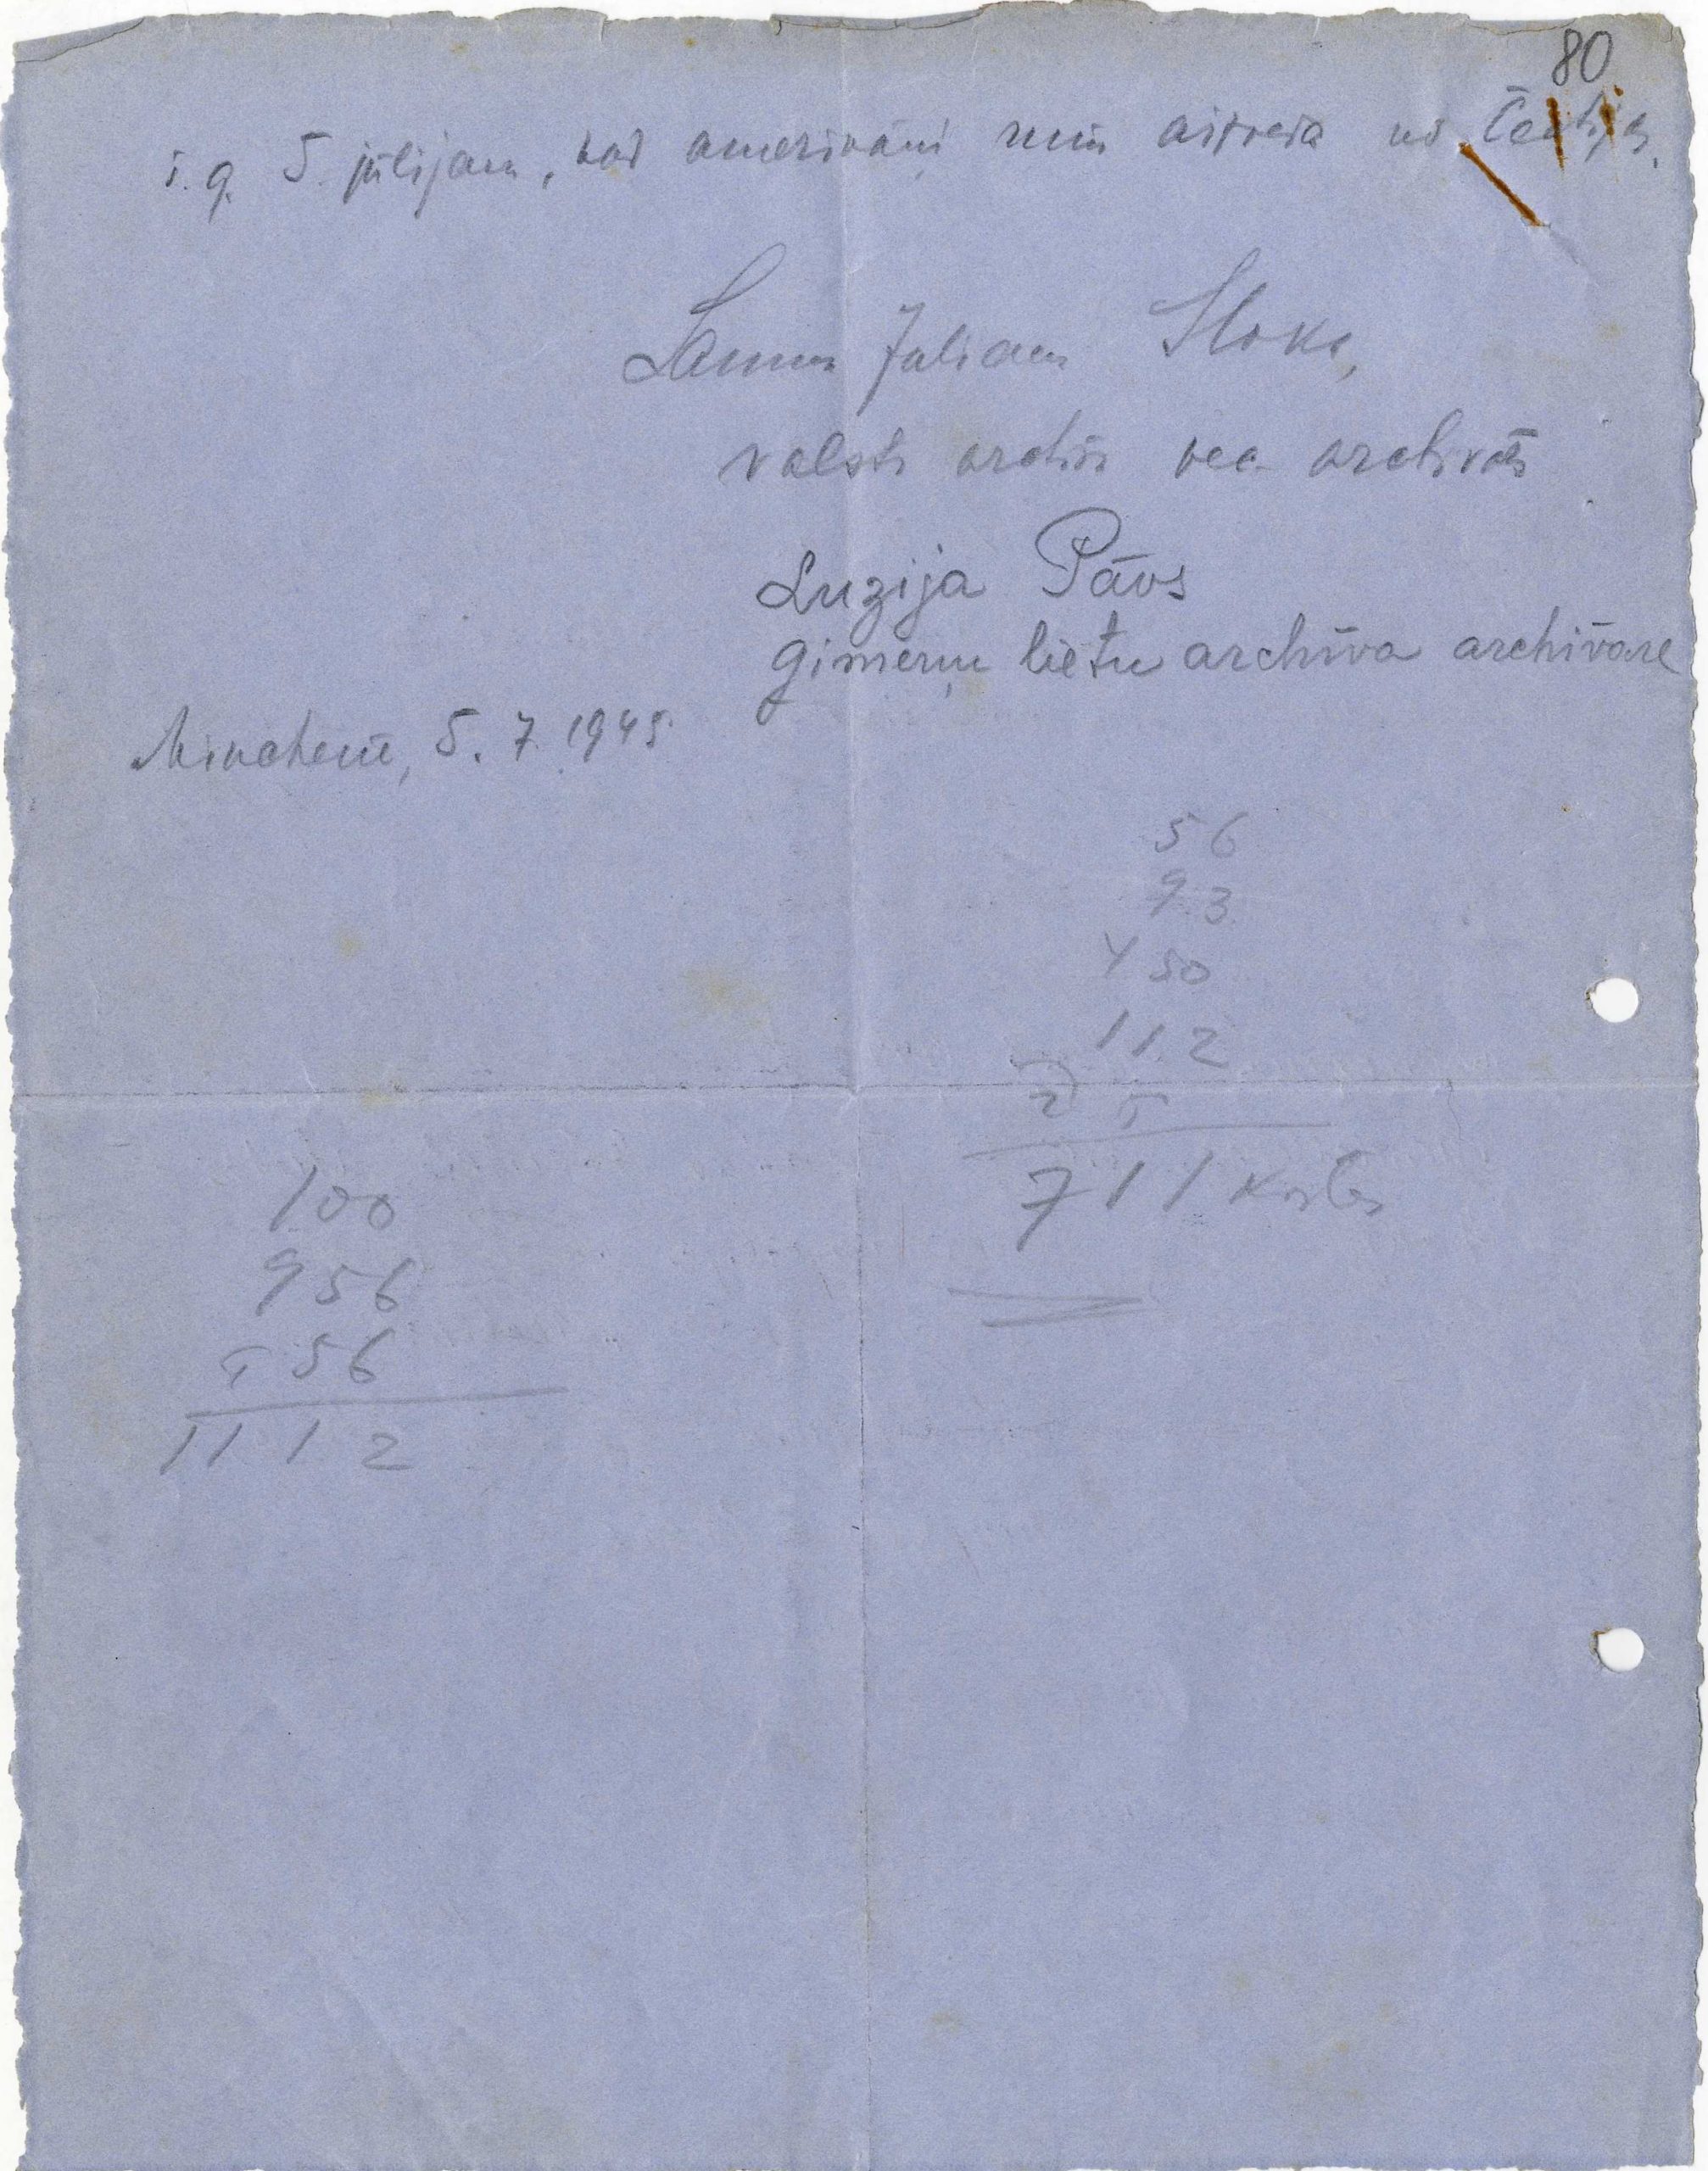 80
š. g. 5. jūlijam, kad amerikāņi mūs aizveda no Čechijas.
Sloka,
valsts archīva vec. archivārs
Luzija Pāvs
ģimeņu lietu archīva archivāre
Minchenē, 5. 7. 1945.
56
93
450
112
711 kastes
100
956
56
1112